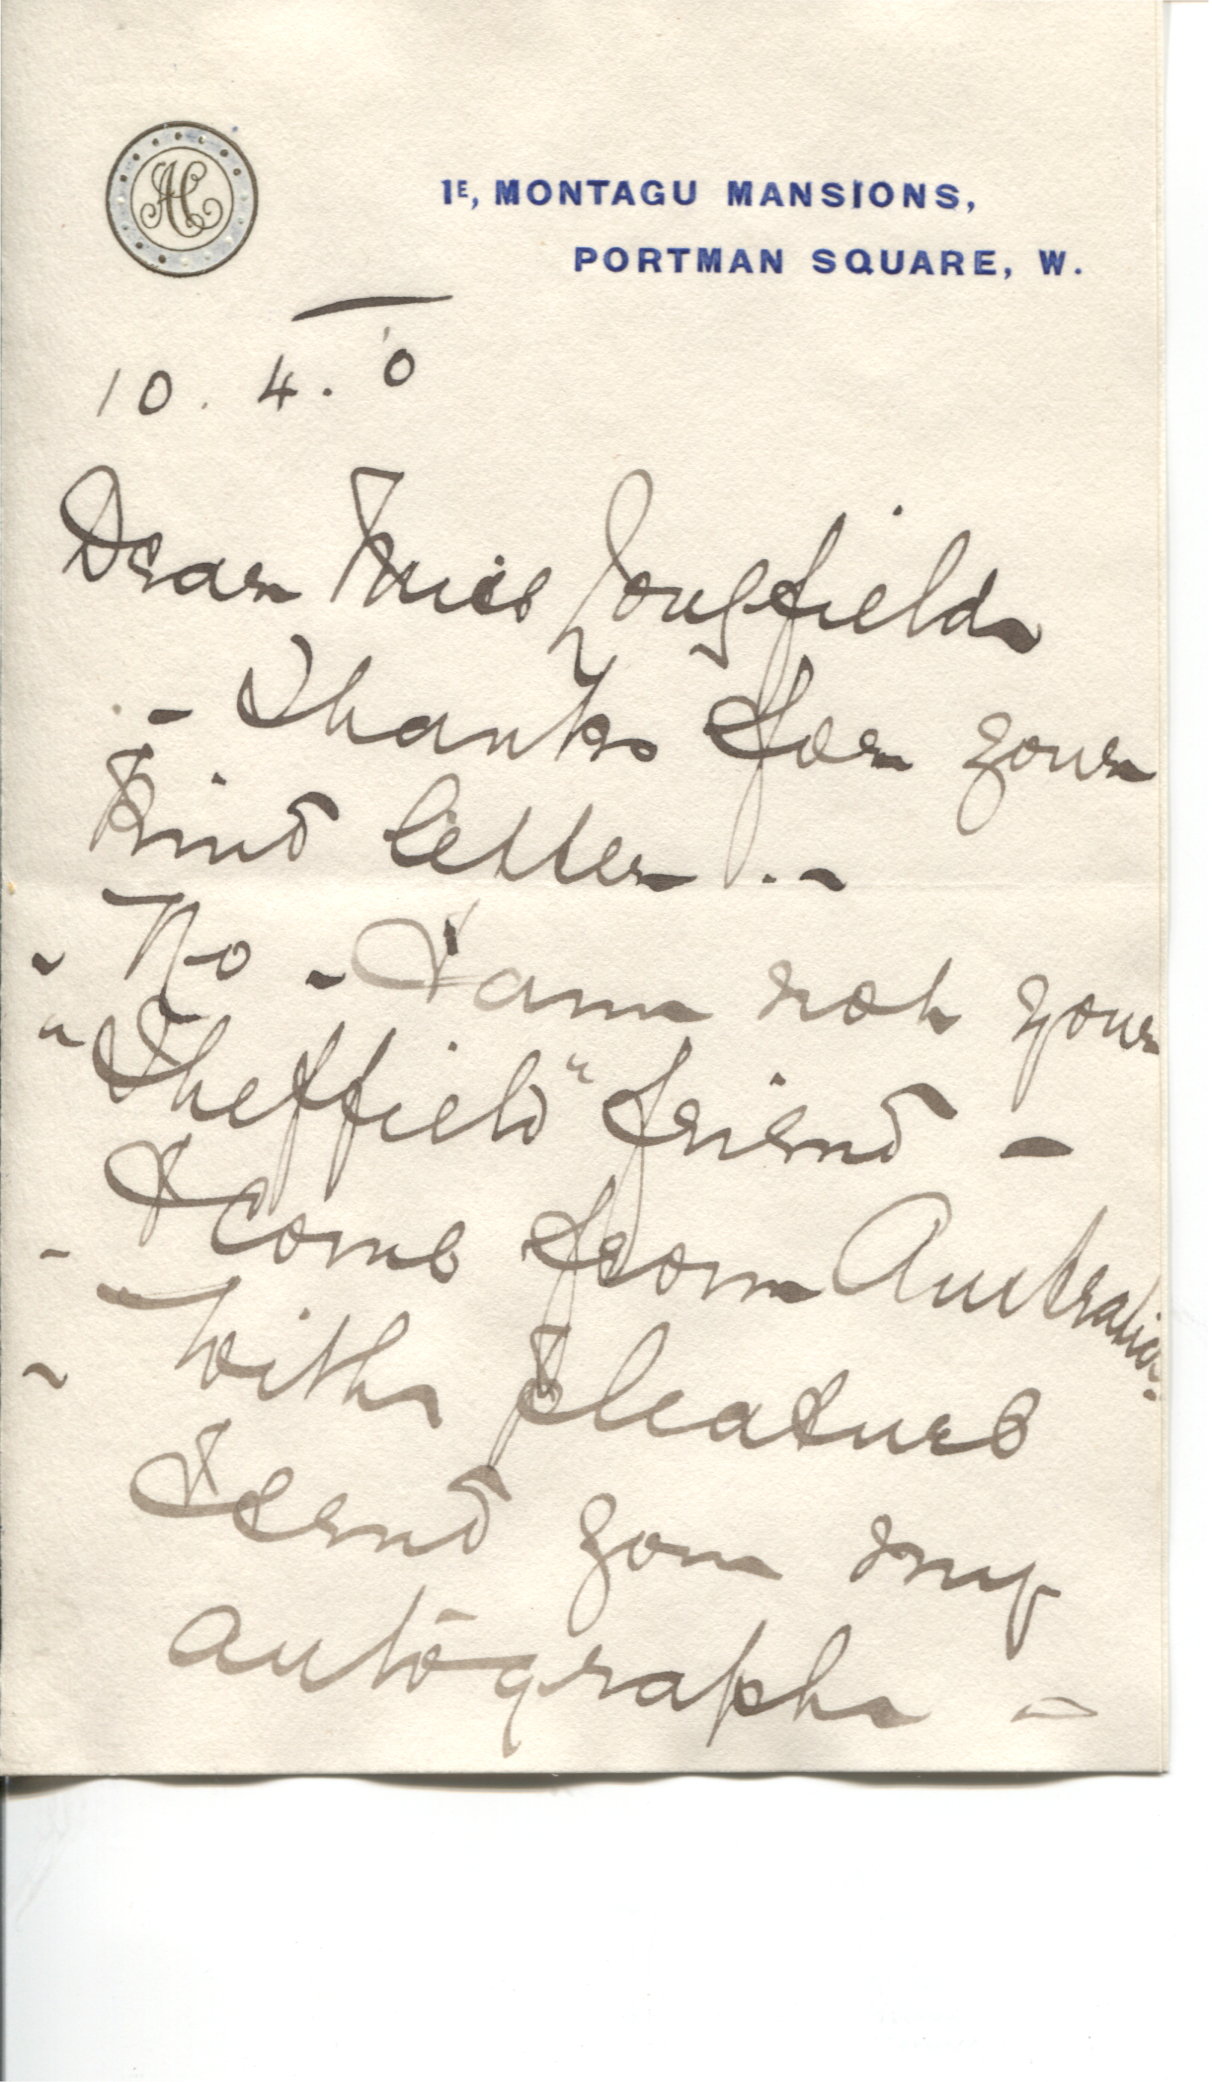 AC
1E, MONTAGU MANSIONS,
PORTMAN SQUARE, W.
10. 4. '0
Dear Miss Longfield
- Thanks for your
kind letter. -
- No - I am not your
"Sheffield" friend -
- I come from Australia.
- With pleasure
I send you my
autograph -